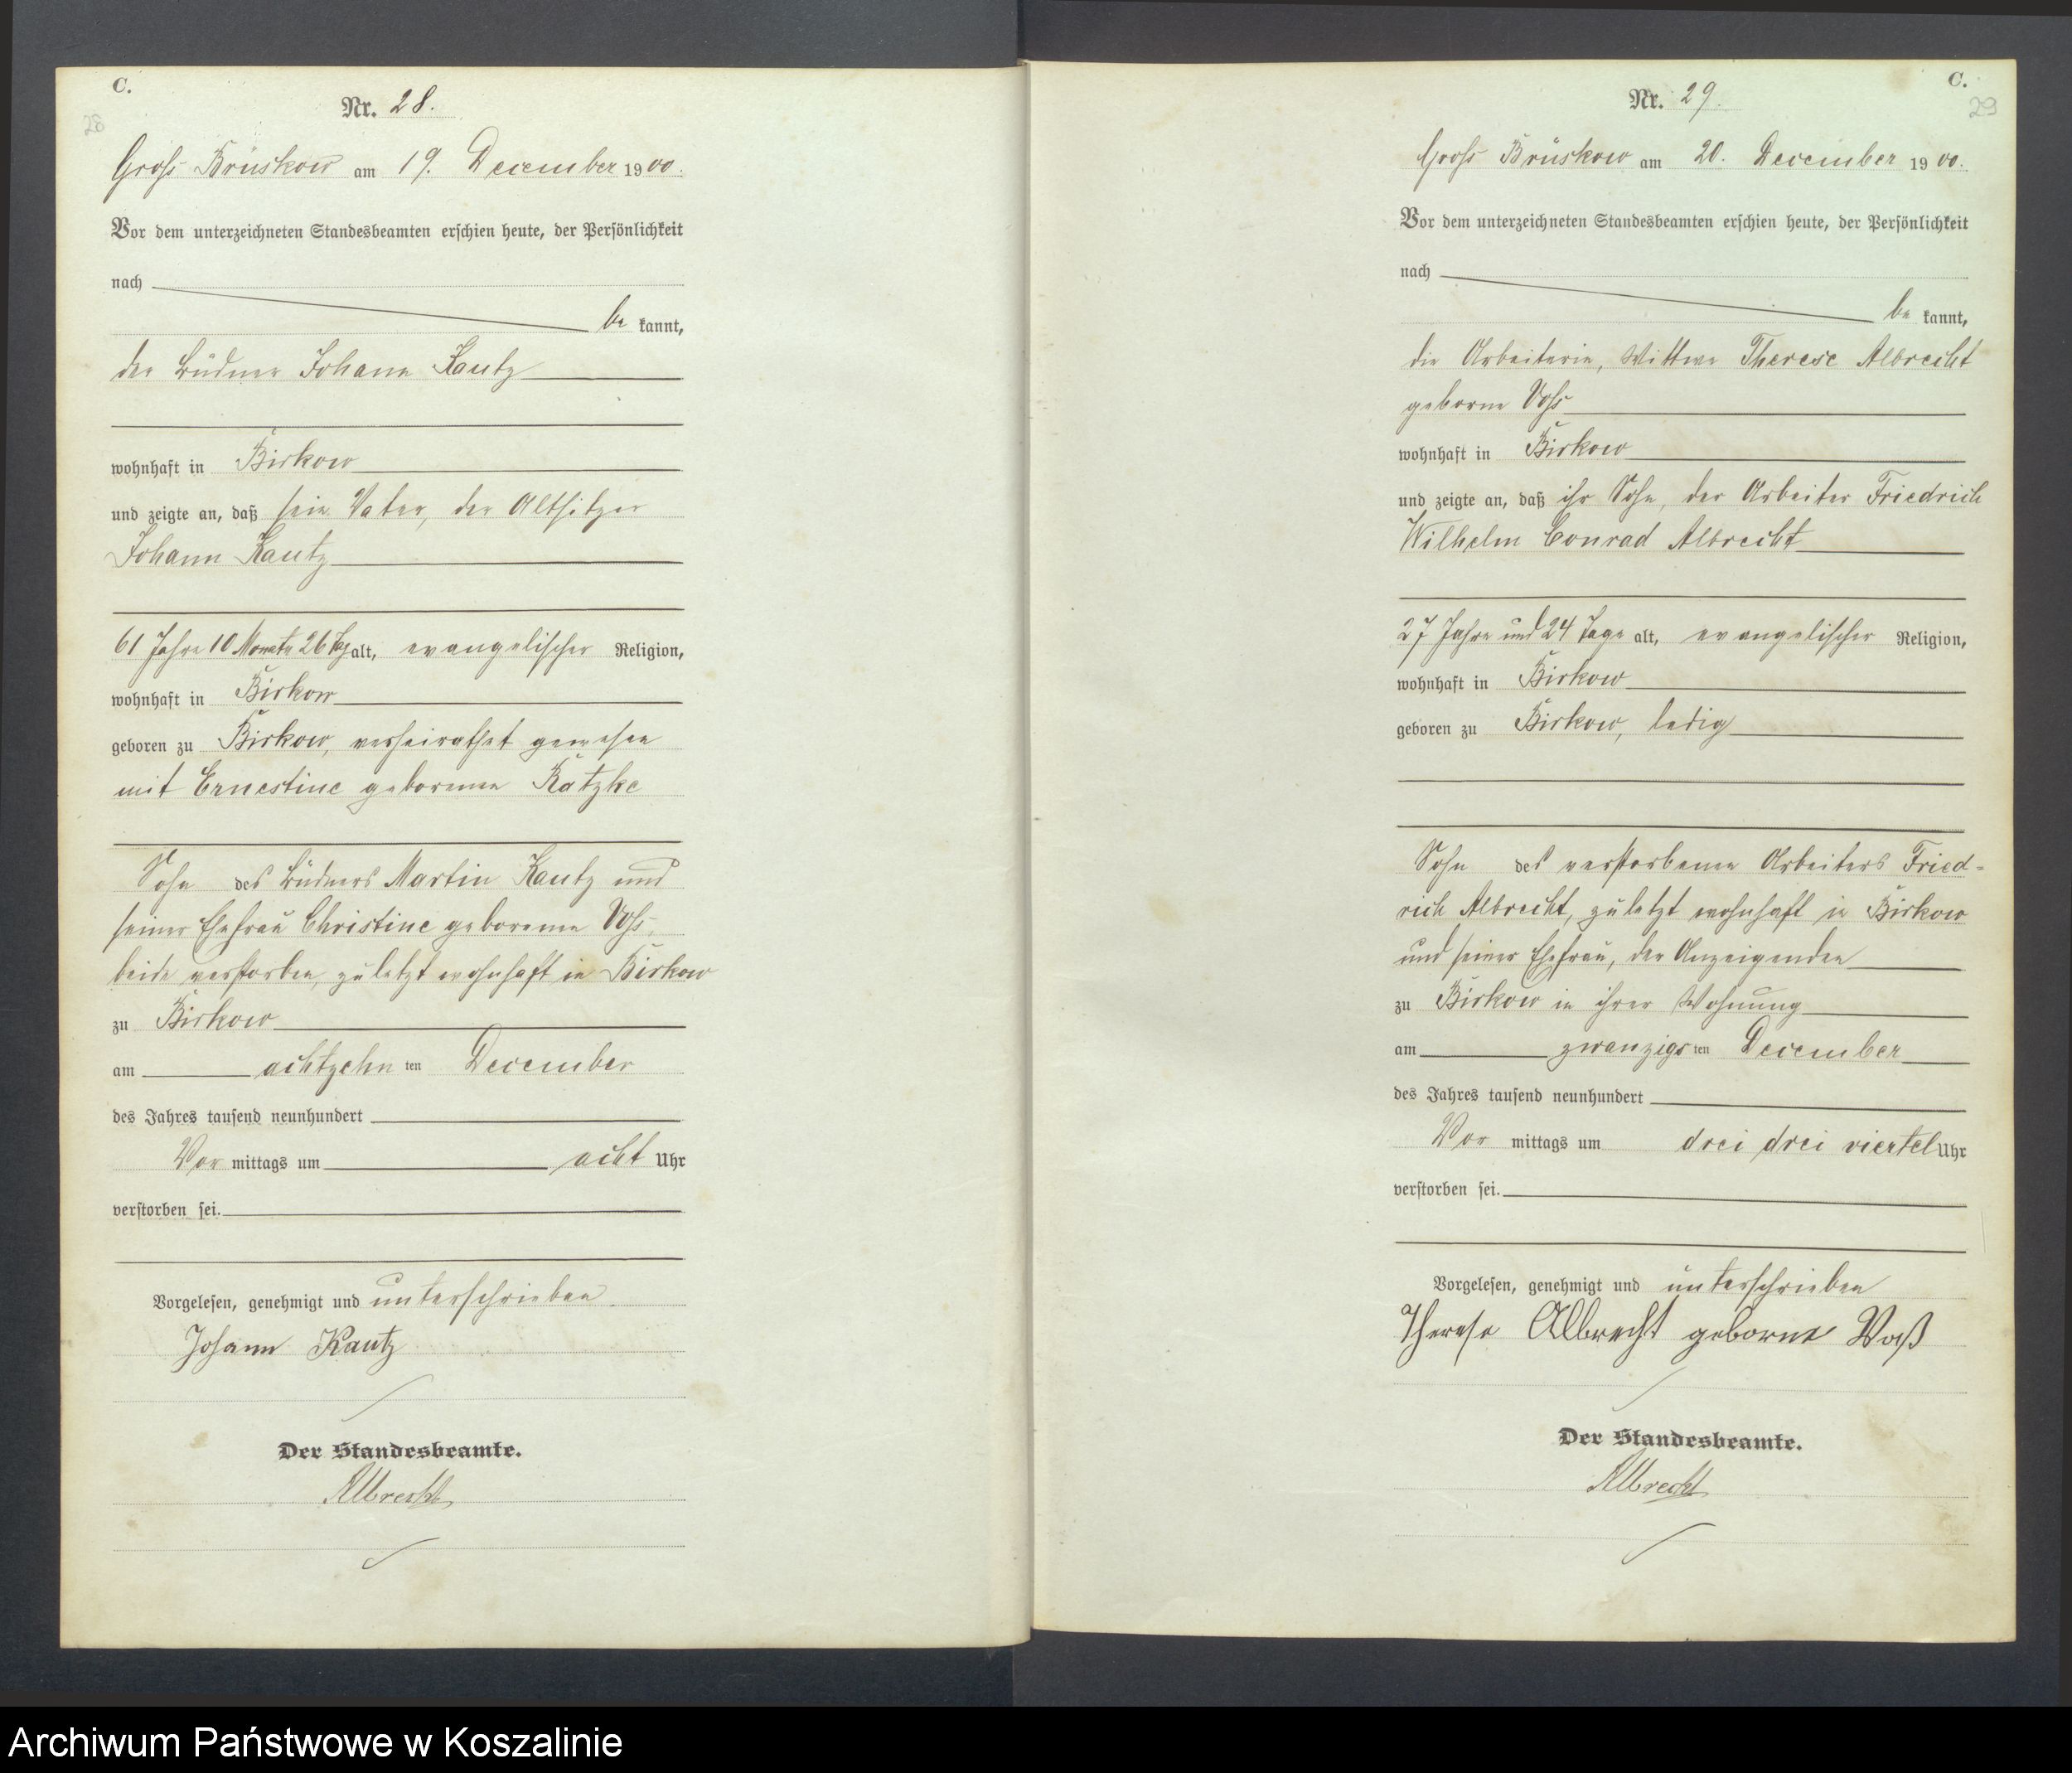 C.
28
Nr. 28.
Gross Brüskow am 19. December 1900.
Vor dem unterzeichneten Standesbeamten erschien heute, der Persönlichkeit
nach
be kannt,
der Büdner Johann Kautz
wohnhaft in Birkow
und zeigte an, daß sein Vater, der Altsitzer
Johann Kautz
61 Jahre 10 Monate 26 Tag alt, evangelischer Religion,
wohnhaft in Birkow
geboren zu Birkow, verheirathet gewesen
mit Ernestine geborenen Ratzke
Sohn des Büdners Martin Kautz und
seiner Ehefrau Christine geborenen Voss,
beide verstorben, zuletzt wohnhaft in Birkow
zu Birkow
am achtzehn ten December
des Jahres tausend neunhundert
Vor mittags um acht Uhr
verstorben sei.
Vorgelesen, genehmigt und unterschrieben.
Johann Kautz
Der Standesbeamte.
Albrecht
C.
29
Nr. 29.
Gross Brüskow am 20. December 1900.
Vor dem unterzeichneten Standesbeamten erschien heute, der Persönlichkeit
nach
be kannt,
die Arbeiterin, Wittwe Therese Albrecht
geborne Voss
wohnhaft in Birkow
und zeigte an, daß ihr Sohn, der Arbeiter Friedrich
Wilhelm Conrad Albrecht
27 Jahre und 24 Tage alt, evangelischer Religion,
wohnhaft in Birkow
geboren zu Birkow, ledig
Sohn des verstorbenen Arbeiters Fried-
rich Albrecht, zuletzt wohnhaft in Birkow
und seiner Ehefrau, der Anzeigenden
zu Birkow in ihrer Wohnung
am zwanzigs ten December
des Jahres tausend neunhundert
Vor mittags um drei drei viertel Uhr
verstorben sei.
Vorgelesen, genehmigt und unterschrieben
Therese Albrecht geborne Voß
Der Standesbeamte.
Albrecht
Archiwum Państwowe w Koszalinie